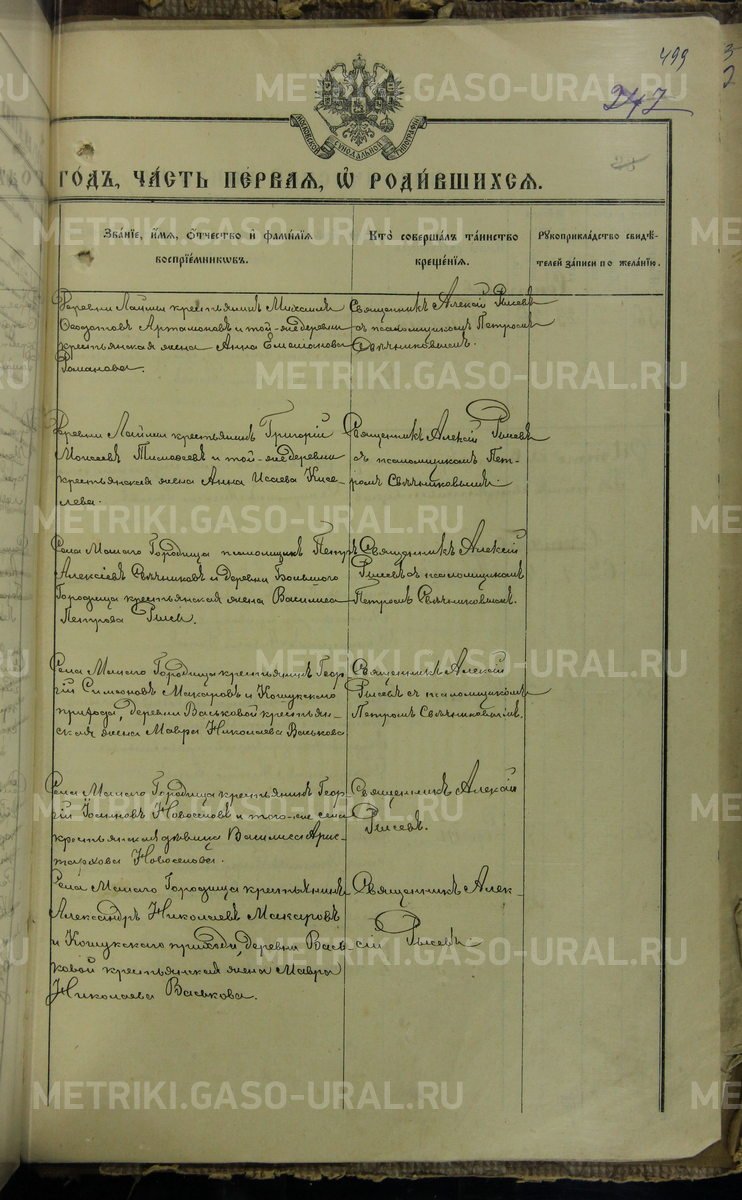 499
247
МОСКОВСКОЙ СѴНОДАЛЬНОЙ ТИПОГРАФІИ
ГОДЪ, ЧАСТЬ ПЕРВАЯ, Ѡ РОДИВШИХСЯ.
Званіе, имя, отчество и фамилія
воспріемниковъ.
Кто совершалъ таинство
крещенія.
Рукоприкладство свидѣ-
телей записи по желанію.
Деревни Лаймы крестьянинъ Михаилъ
Артамоновъ и той-же деревни
крестьянская жена Анна Емельянова
Романова.
Священникъ Алексій Рысевъ
съ псаломщикомъ Петромъ
Свѣчниковымъ.
Деревни Лаймы крестьянинъ Григорій
Моисеевъ Тимофеевъ и той-же деревни
крестьянская жена Анна Исаева Кисе-
лева.
Священникъ Алексій Рысевъ
съ псаломщикомъ Пет-
ромъ Свѣчниковымъ.
Села Малаго Городища псаломщикъ Петръ
Алексіевъ Свѣчниковъ и деревни Большого
Городища крестьянская жена Василиса
Петрова
Священникъ Алексій
Рысевъ съ псаломщикомъ
Петромъ Свѣчниковымъ.
Села Малаго Городища крестьянинъ Геор-
гій Симеоновъ Макаровъ и Кошукскаго
прихода, деревни Васьковой крестьян-
ская жена Мавра Николаева Васькова
Священникъ Алексій
Рысевъ съ псаломщикомъ
Петромъ Свѣчниковымъ.
Села Малаго Городища крестьянинъ Геор-
гій Новоселовъ и того-же села
крестьянская дѣвица Василиса Арис-
тархова Новоселова.
Священникъ Алексій
Рысевъ.
Села Малаго Городища крестьянинъ
Александръ Николаевъ Макаровъ
и Кошукскаго прихода, деревни Вась-
ковой крестьянская жена Мавра
Николаева Васькова.
Священникъ Алек-
сій Рысевъ.
METRIKI.GASO-URAL.RU
METRIKI.GASO-URAL.RU
METRIKI.GASO-URAL.RU
METRIKI.GASO-URAL.RU
METRIKI.GASO-URAL.RU
METRIKI.GASO-URAL.RU
METRIKI.GASO-URAL.RU
METRIKI.GASO-URAL.RU